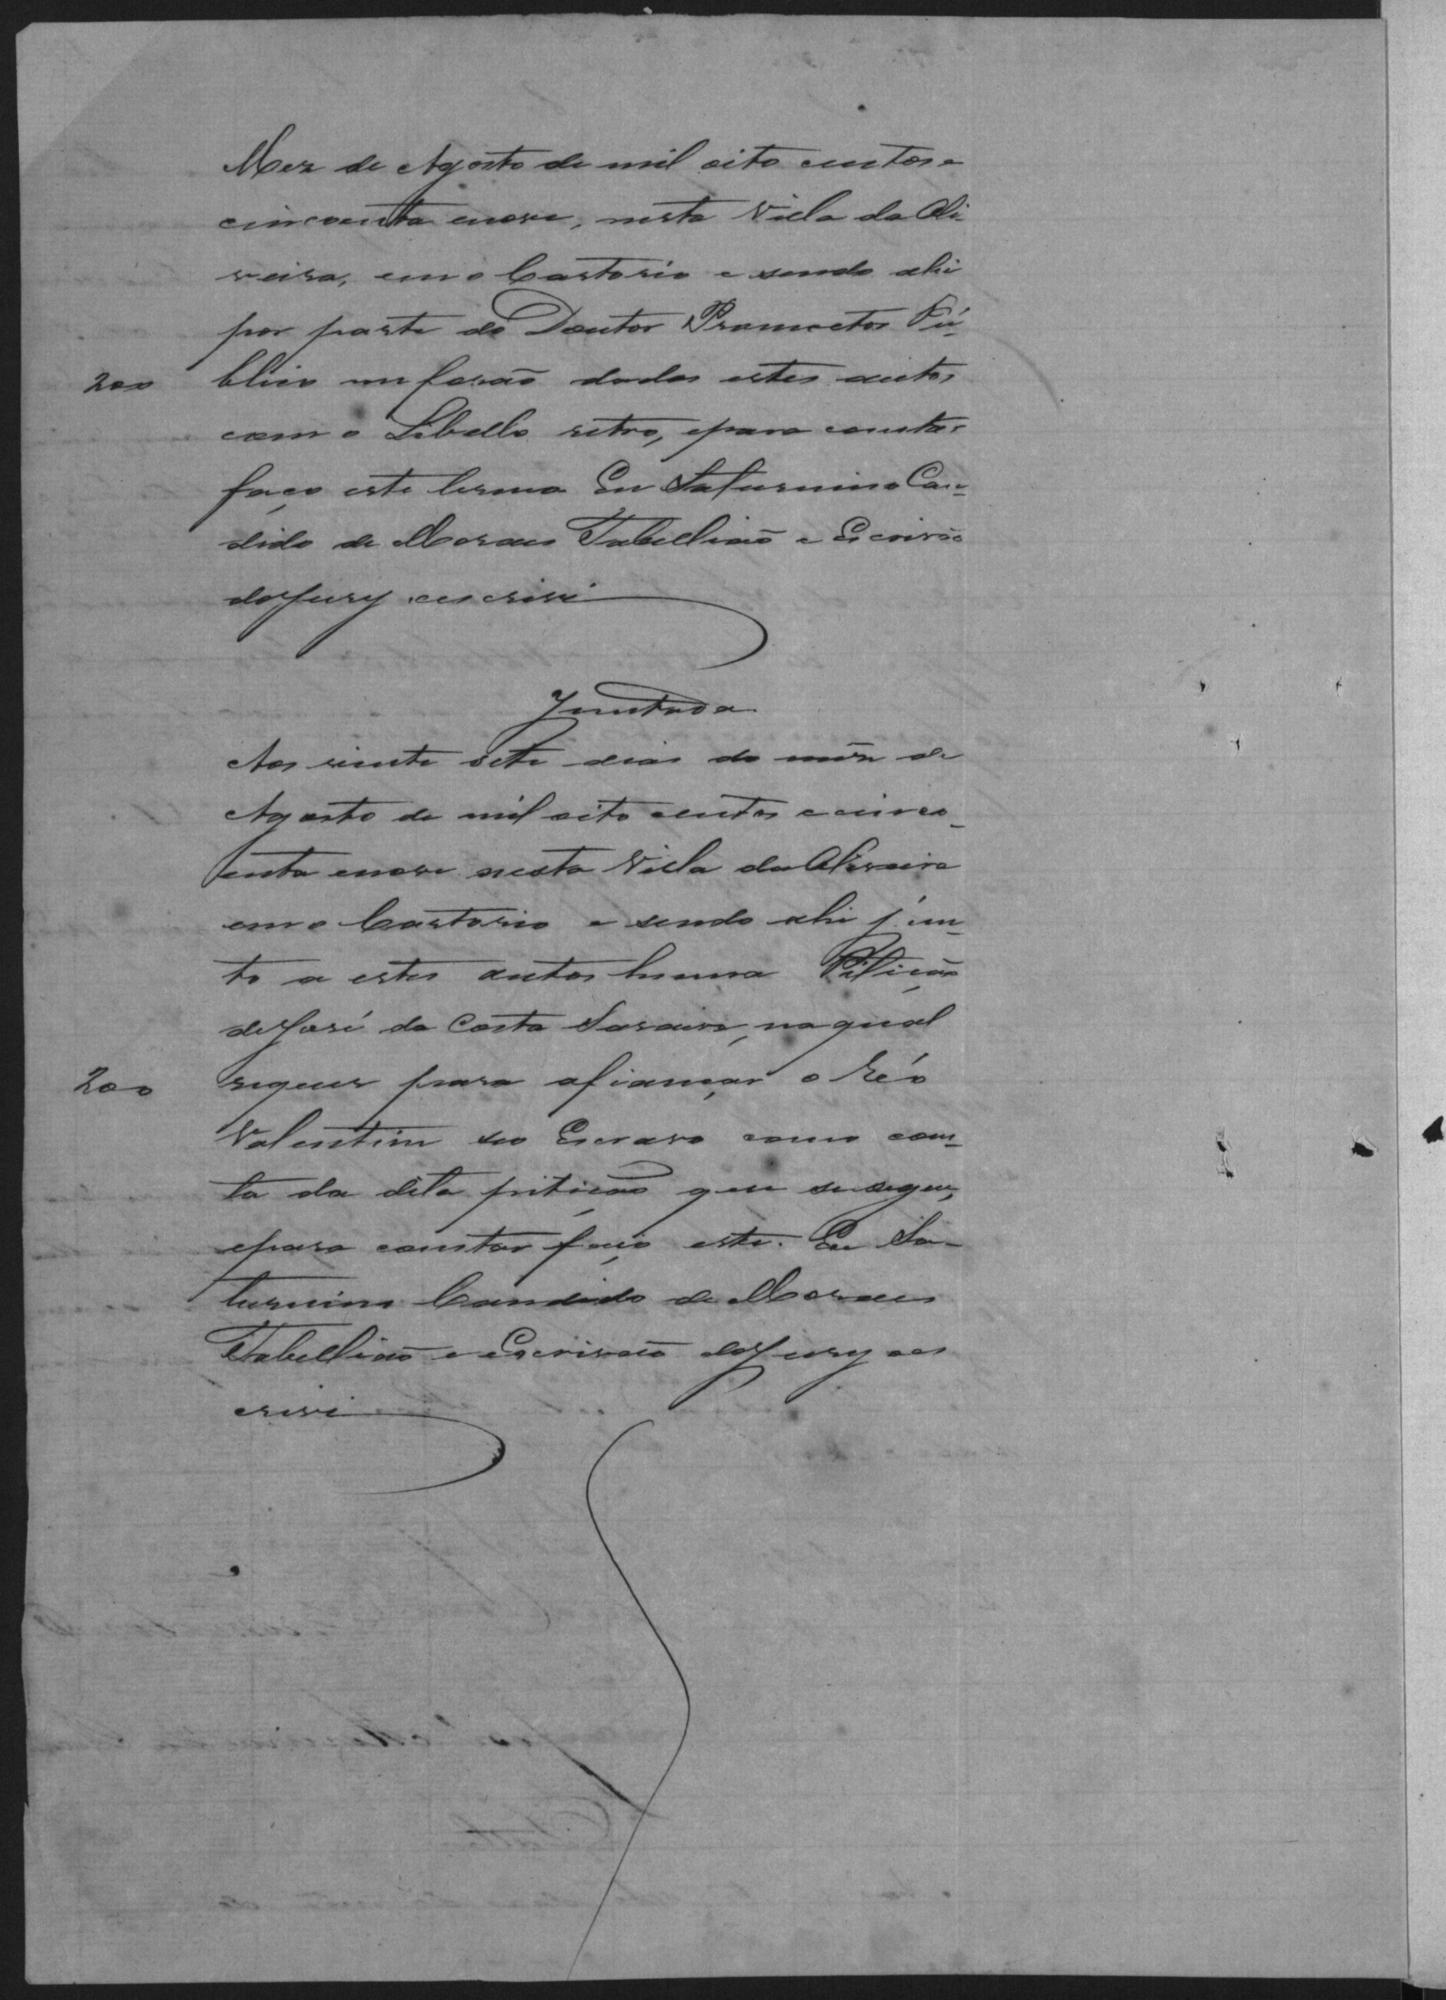 Mez de Agosto de mil oito centos e
cincoenta enove, nesta Villa da Oli
veira, em o Cartorio e sendo ahi
por parte do Doutor Promoctor Pú-
200 blico me forão dados estes autos
com o Libello retro, epara constar
faço este termo Eu Saturnino Can-
dido de Moraes Tabellião e Escrivão
doJury o escrivi
Juntada
Aos vinte sete dias do mêz de
Agosto de mil oito centos e cinco-
enta enove nesta Villa da Oliveira
em o Cartorio e sendo ahi jun-
to a estes autos huma Pitição
deJosé da Costa Saraiva, na qual
200 requer para afiançar o Réo
Valentim seo Escravo como cons-
ta da dita pitição que sesegue,
epara constar faço este. Eu Sa-
turnino Candido de Moraes
Tabellião e Escrivão doJury o es
crivi